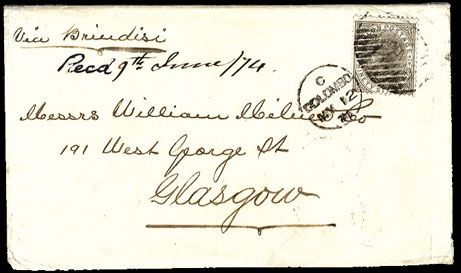 Via Brindisi
Recd 9th June/74.
C
COLOMBO
MY 12
Messrs William Milne & Co
191 West George St
Glasgow